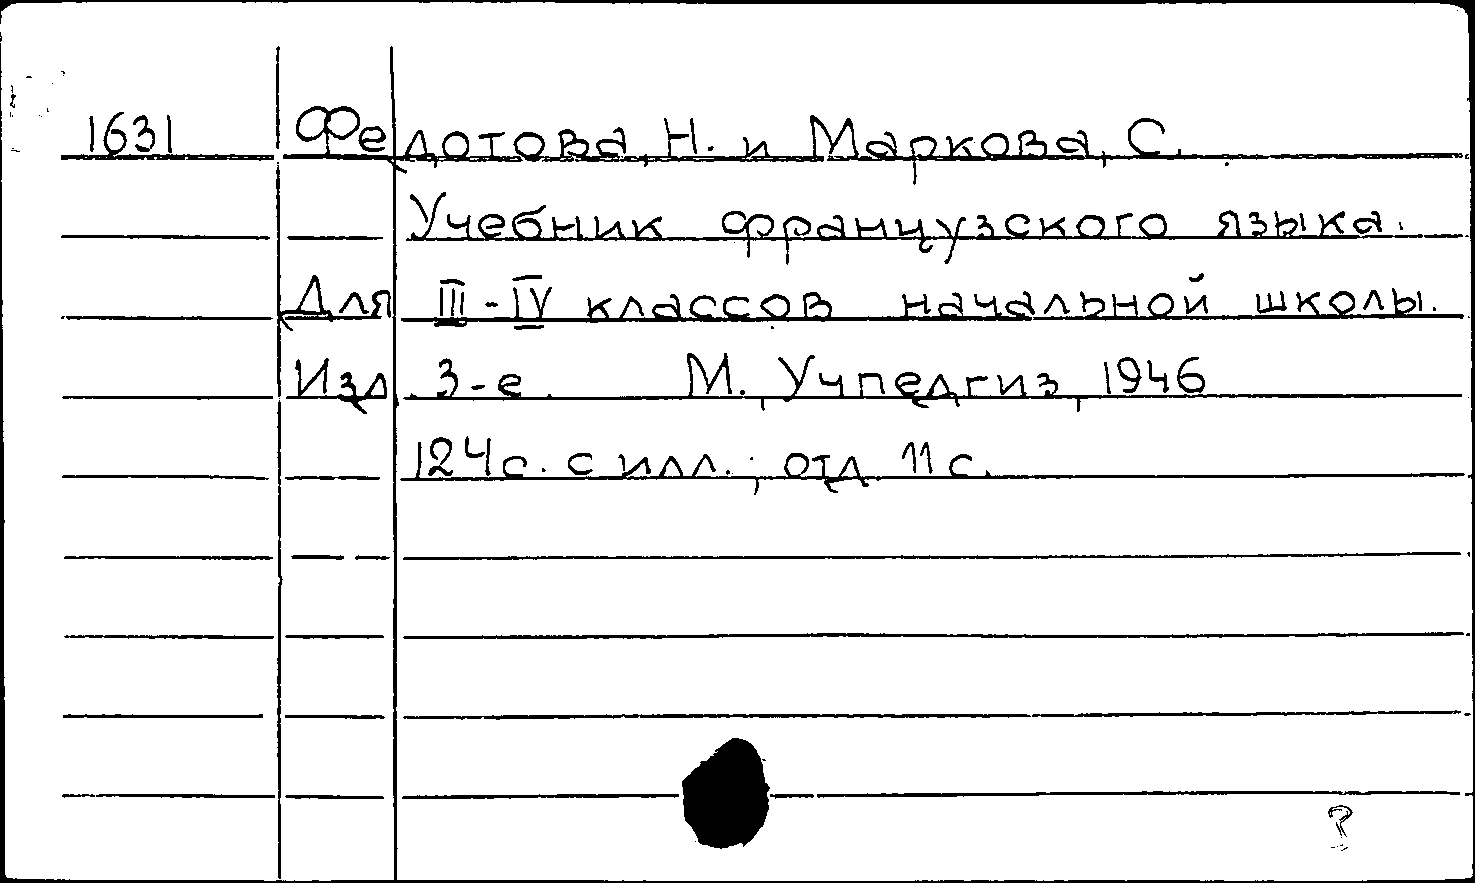 1631 Федотова, Н. и Маркова, С.
Учебник французского языка.
Для III-IV классов начальной школы.
Изд. 3-е. М., Учпедгиз, 1946
124 с. с илл.; отд 11 с.
?